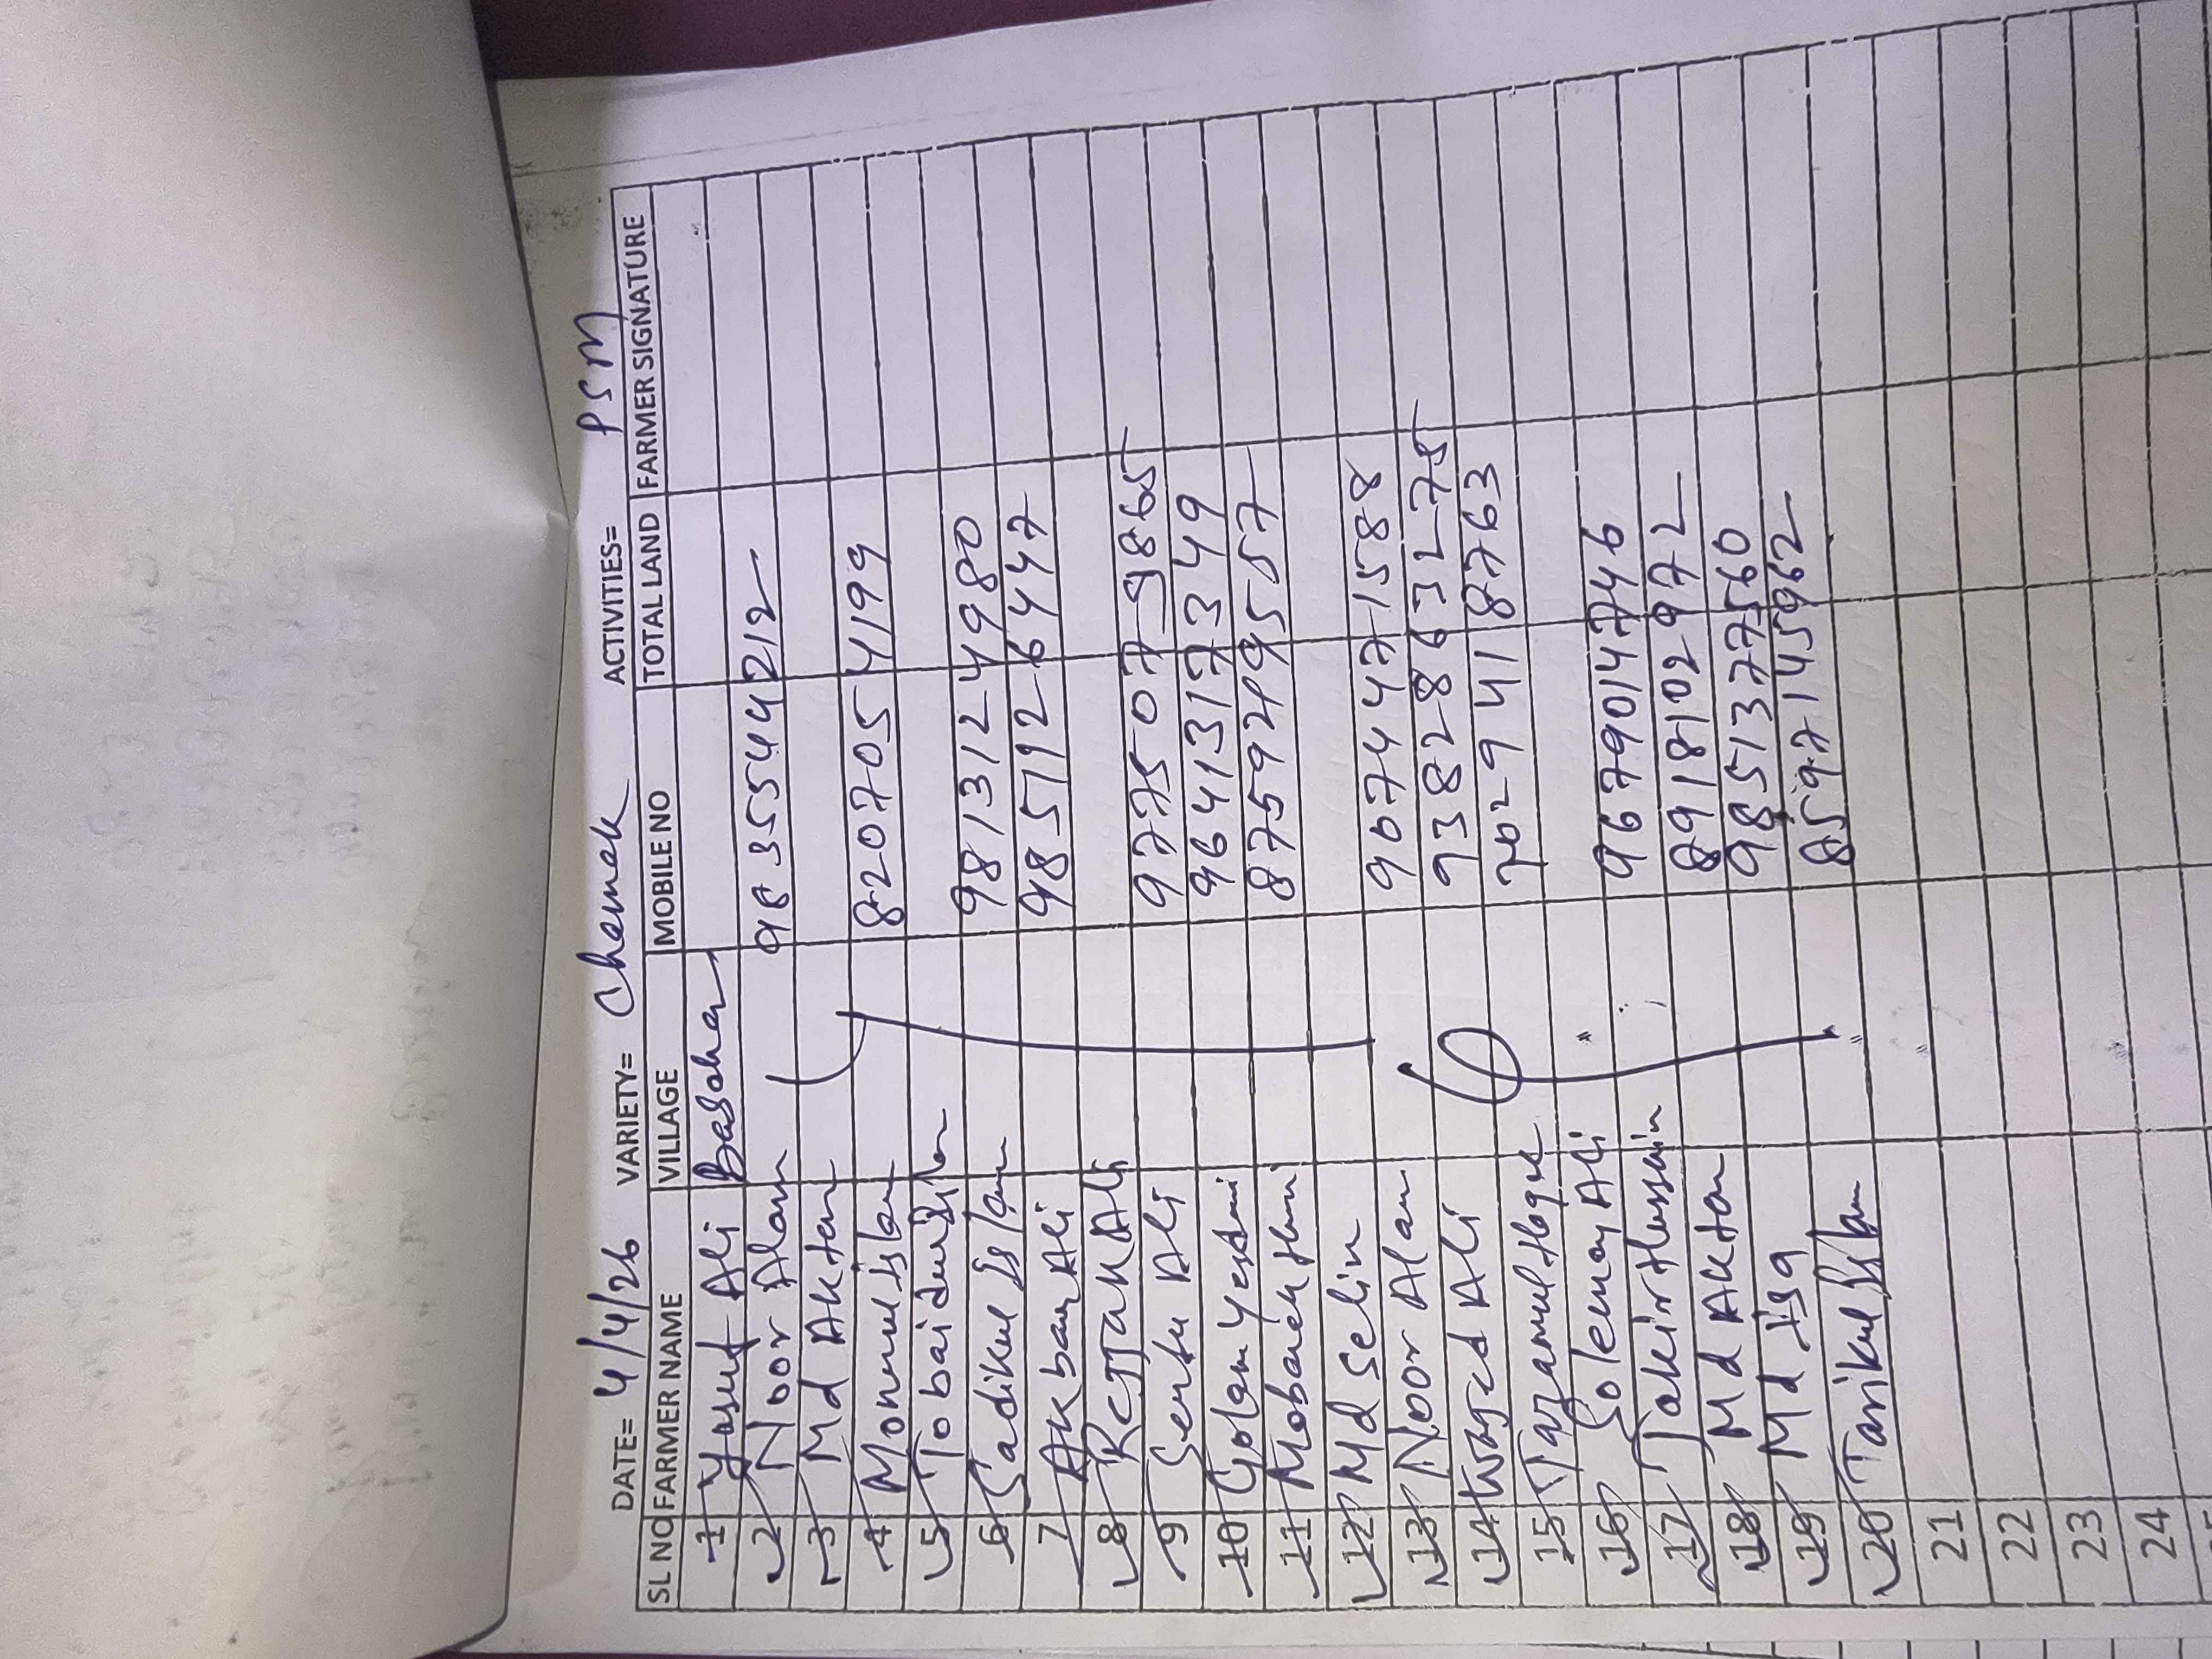 DATE= 4/4/26 VARIETY= Chamak ACTIVITIES= PSM
SL NO FARMER NAME VILLAGE MOBILE NO TOTAL LAND FARMER SIGNATURE
1 Yosuf Ali Basahar
2 Noor Alam 9835544212
3 Md Aktar
4 Monirul Islam 8207054199
5 Tobaidur
6 Sadikul Islam 9813124980
7 Akbar Ali 9851926447
8 Rejjak Ali
9 Sentu Ali 9775079865
10 Golam 9641317349
11 Mobarak 8759249557
12 Md Selim
13 Noor Alam 9074471588
14 Wajed Ali 9382863275
15 Tazamul Hoque 7029418763
16 Soleman Ali "
17 Jakir Hussain 9679014746
18 Md Aktar 8918102972
19 Md Isa 9851377560
20 Tarikul Islam " 8597145962
21
22
23
24